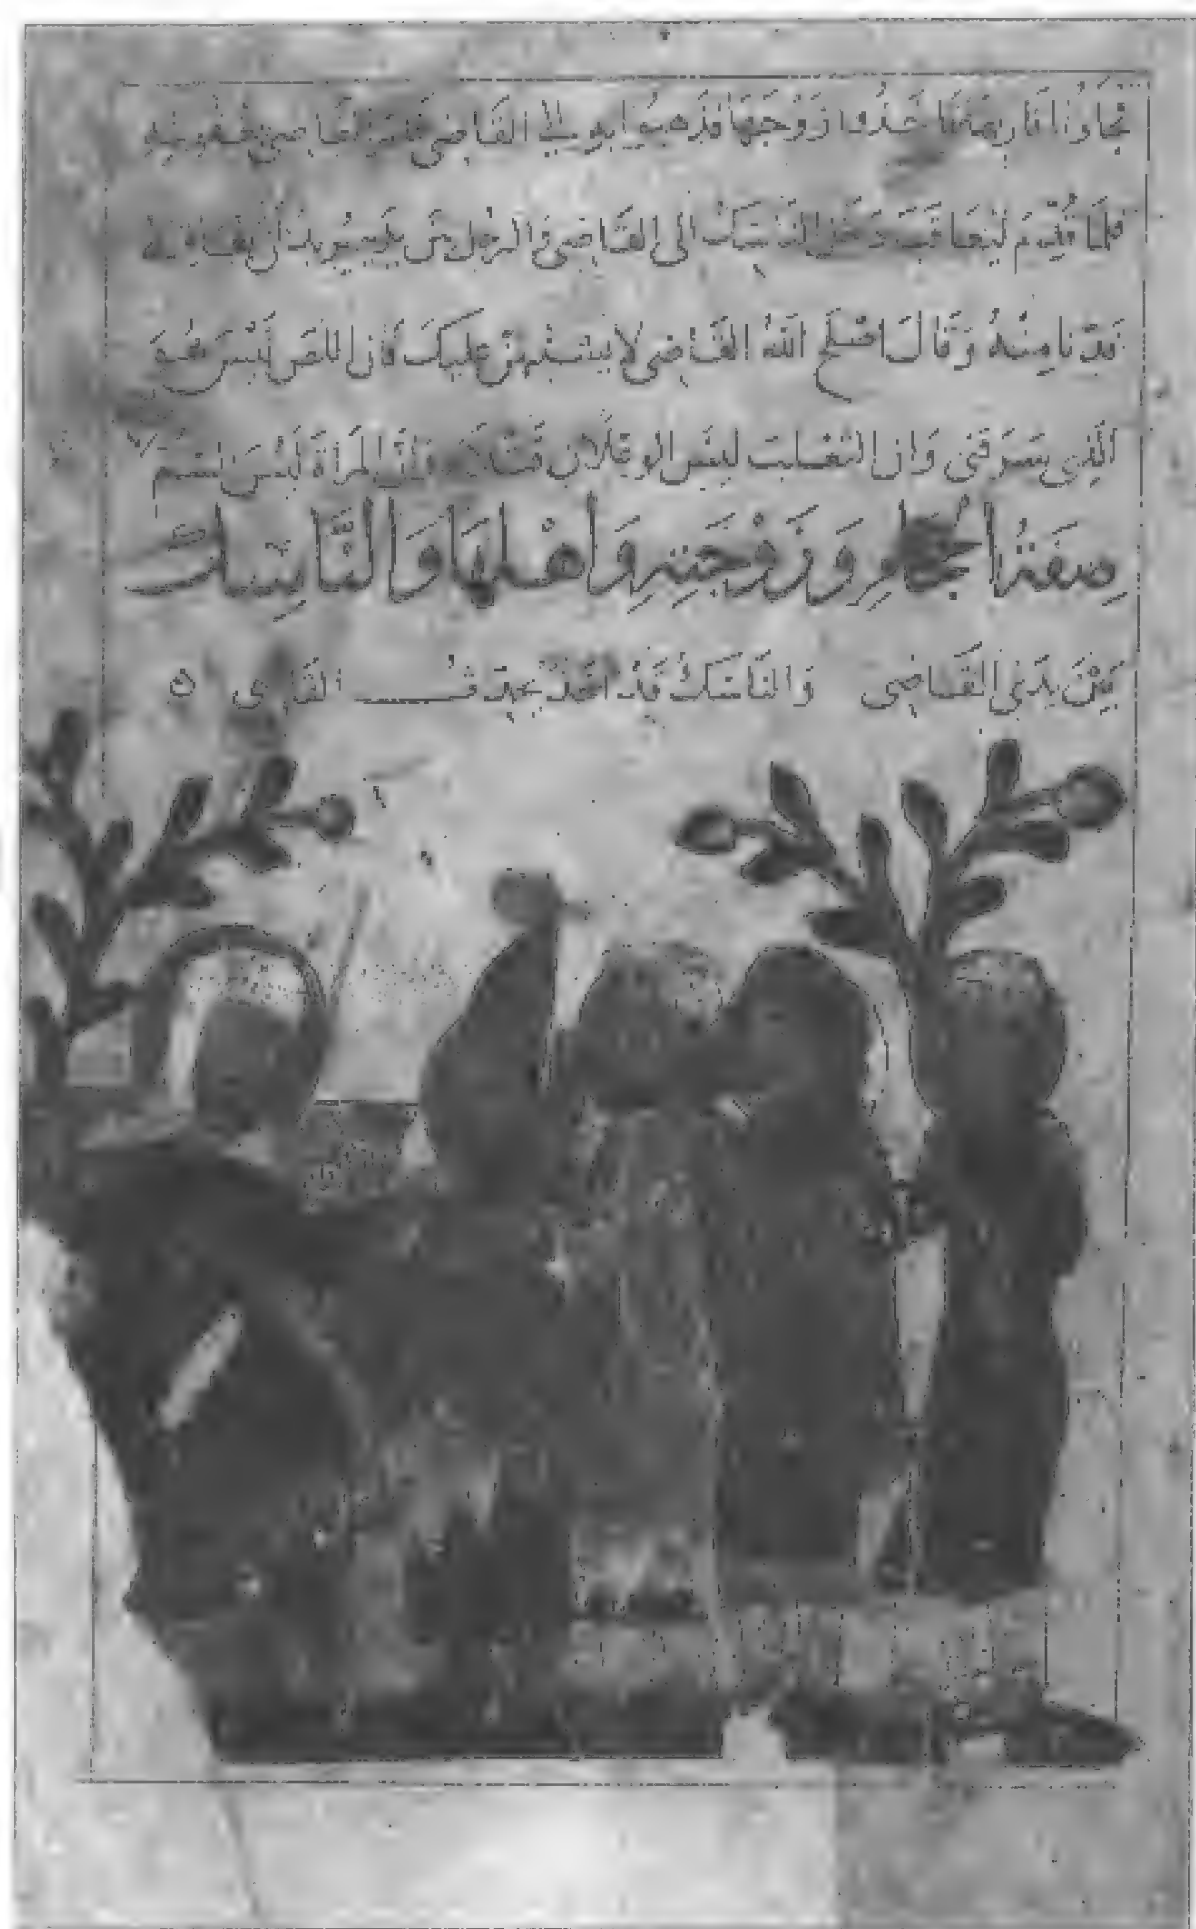 فاخذوا زوجها فذهبوا به الى القاضي القاضي
فلما قدم ليعاقب دخل الناسك الى القاضي والرجل بين يديه يريد ان
فدنا منه وقال اصلح الله القاضي لا يشتبهن عليك فان اللص ليس هو
الذي سرقني وان الثعلب ليس الوعلان وان المراة ليس السم
صفة الحجام وزوجته واهلها والناسك
بين يدي القاضي والناسك قد اخذ القاضي